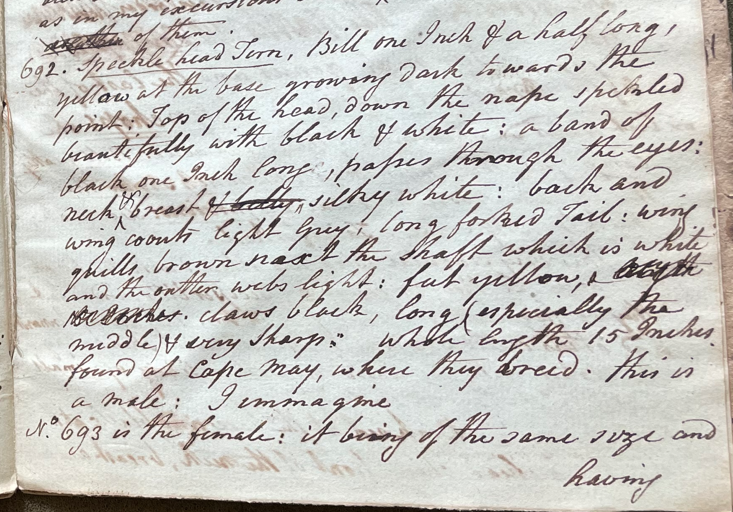 as in my excursions
of them.
692. Speckle head Tern, Bill one Inch & a half long,
yellow at the base growing dark towards the
point: Top of the head, down the nape speckled
beautifully with black & white: a band of
black one Inch long, passes through the eyes:
neck, & breast & belly, silky white: back and
wing coouts light Grey; long forked Tail: wing
quills brown naxt the shaft which is white
and the outter webs light: feet yellow, &
claws black, long (especially the
middle) & very sharp: whole length 15 Inches.
found at Cape May, where they breed. this is
a male: I immagine
No. 693 is the female: it being of the same size and
having